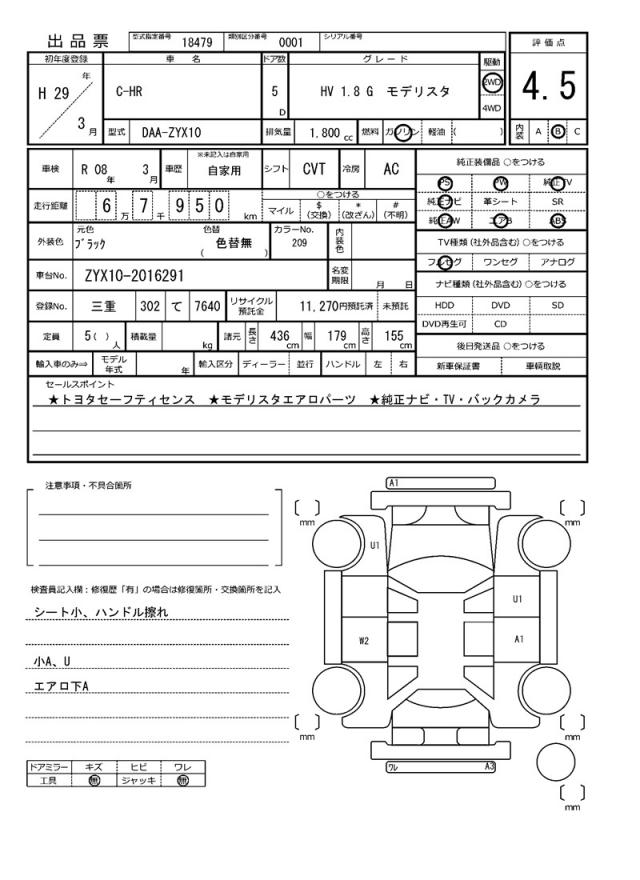 出品票 型式指定番号 18479 類別区分番号 0001 シリアル番号
初年度登録 車名 ドア数 グレード 駆動 評価点
H 29 年 3 月 C-HR 5 D HV 1.8 G モデリスタ 2WD 4WD 4.5
型式 DAA-ZYX10 排気量 1,800 cc 燃料 ガソリン 軽油 ( ) 内装 A B C
車検 R 08 年 3 月 車歴 ※未記入は自家用 自家用 シフト CVT 冷房 AC 純正装備品 ○をつける
PS PW 純正TV
走行距離 6 万 7 千 950 km ○をつける 純正ナビ 革シート SR
マイル $ (交換) * (改ざん) # (不明) 純正AW エアB ABS
外装色 元色 ブラック 色替 色替無 ( ) カラーNo. 209 内装色 TV種類 (社外品含む) ○をつける
フルセグ ワンセグ アナログ
車台No. ZYX10-2016291 名変期限 月 日 ナビ種類 (社外品含む) ○をつける
登録No. 三重 302 て 7640 リサイクル預託金 11,270円預託済 未預託 HDD DVD SD
DVD再生可 CD
定員 5( ) 人 積載量 kg 諸元 長さ 436 cm 幅 179 cm 高さ 155 cm 後日発送品 ○をつける
輸入車のみ⇒ モデル年式 年 輸入区分 ディーラー 並行 ハンドル 左 右 新車保証書 車輌取説
セールスポイント
★トヨタセーフティセンス ★モデリスタエアロパーツ ★純正ナビ・TV・バックカメラ
注意事項・不具合箇所
検査員記入欄：修復歴「有」の場合は修復箇所・交換箇所を記入
シート小、ハンドル擦れ
小A、U
エアロ下A
ドアミラー キズ ヒビ ワレ
工具 無 ジャッキ 無
A1
mm mm
U1
U1
W2 A1
mm mm
ワレ A3
mm